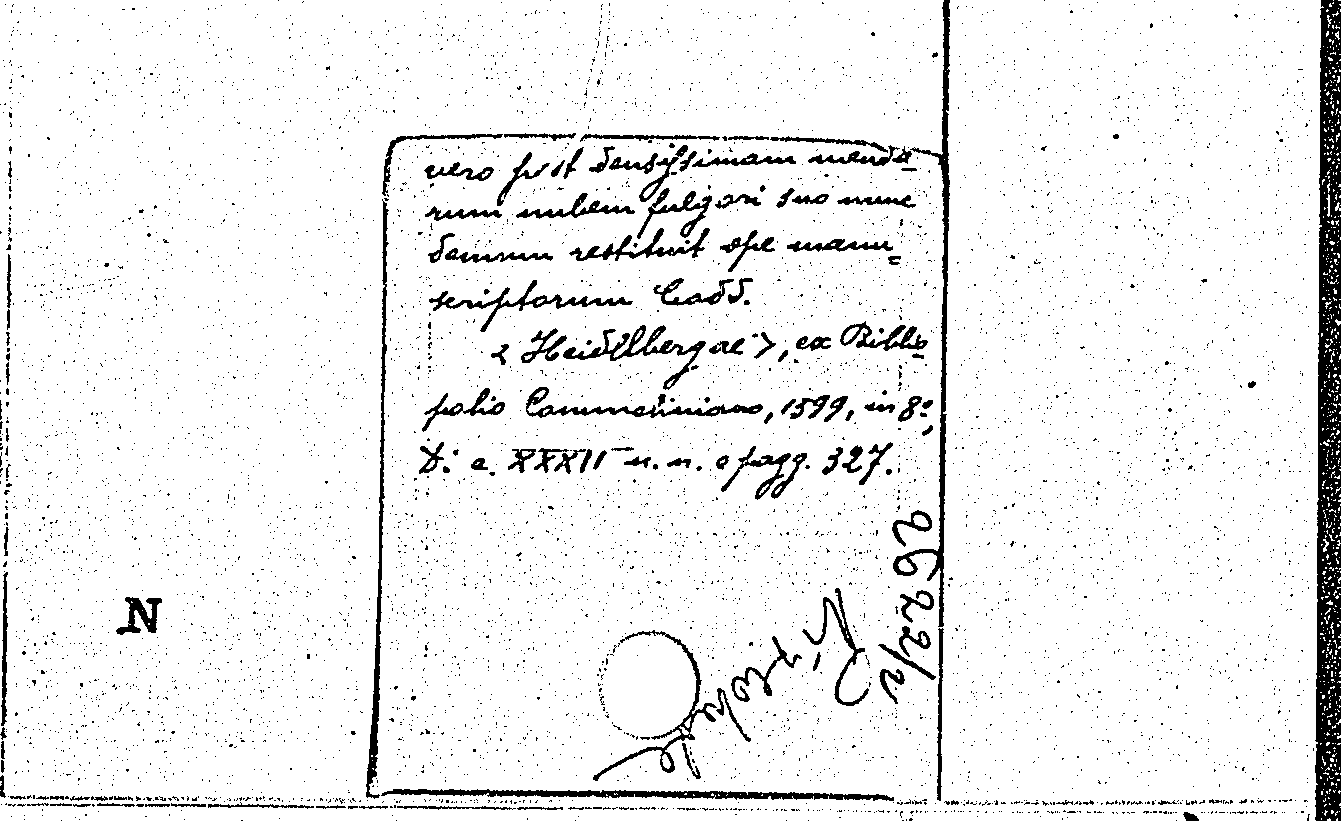 vero post densissimam menda-
rum nubem fulgori suo nunc
demum restituit ope manu=
scriptorum Codd.
< Heidelbergae >, ex Biblio-
polio Commeliniano, 1599, in 8º,
D: c. XXXII n. n. e pagg. 327.
2622/2
N